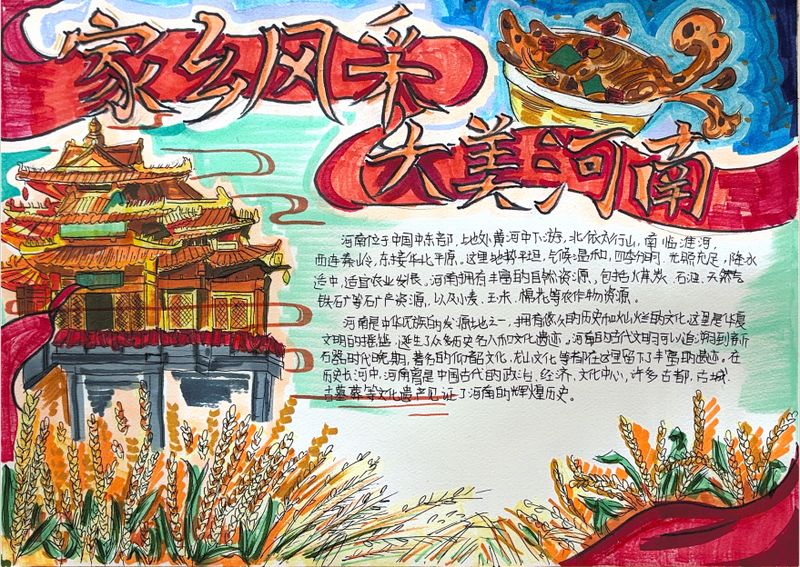 家乡风采
大美河南
河南位于中国中东部,地处黄河中下游,北依太行山,南临淮河,
西连秦岭,东接华北平原,这里地势平坦,气候温和,四季分明,光照充足,降水
适中,适宜农业发展,河南拥有丰富的自然资源,包括煤炭、石油、天然气
铁矿等矿产资源,以及小麦、玉米、棉花等农作物资源。
河南是中华民族的发源地之一,拥有悠久的历史和灿烂的文化,这里是华夏
文明的摇篮,诞生了众多历史名人和文化遗迹,河南的古代文明可以追溯到新
石器时代晚期,著名的仰韶文化、龙山文化等都在这里留下了丰富的遗迹。在
历史长河中,河南曾是中国古代的政治、经济、文化中心,许多古都、古城、
古墓葬等文化遗产见证了河南的辉煌历史。